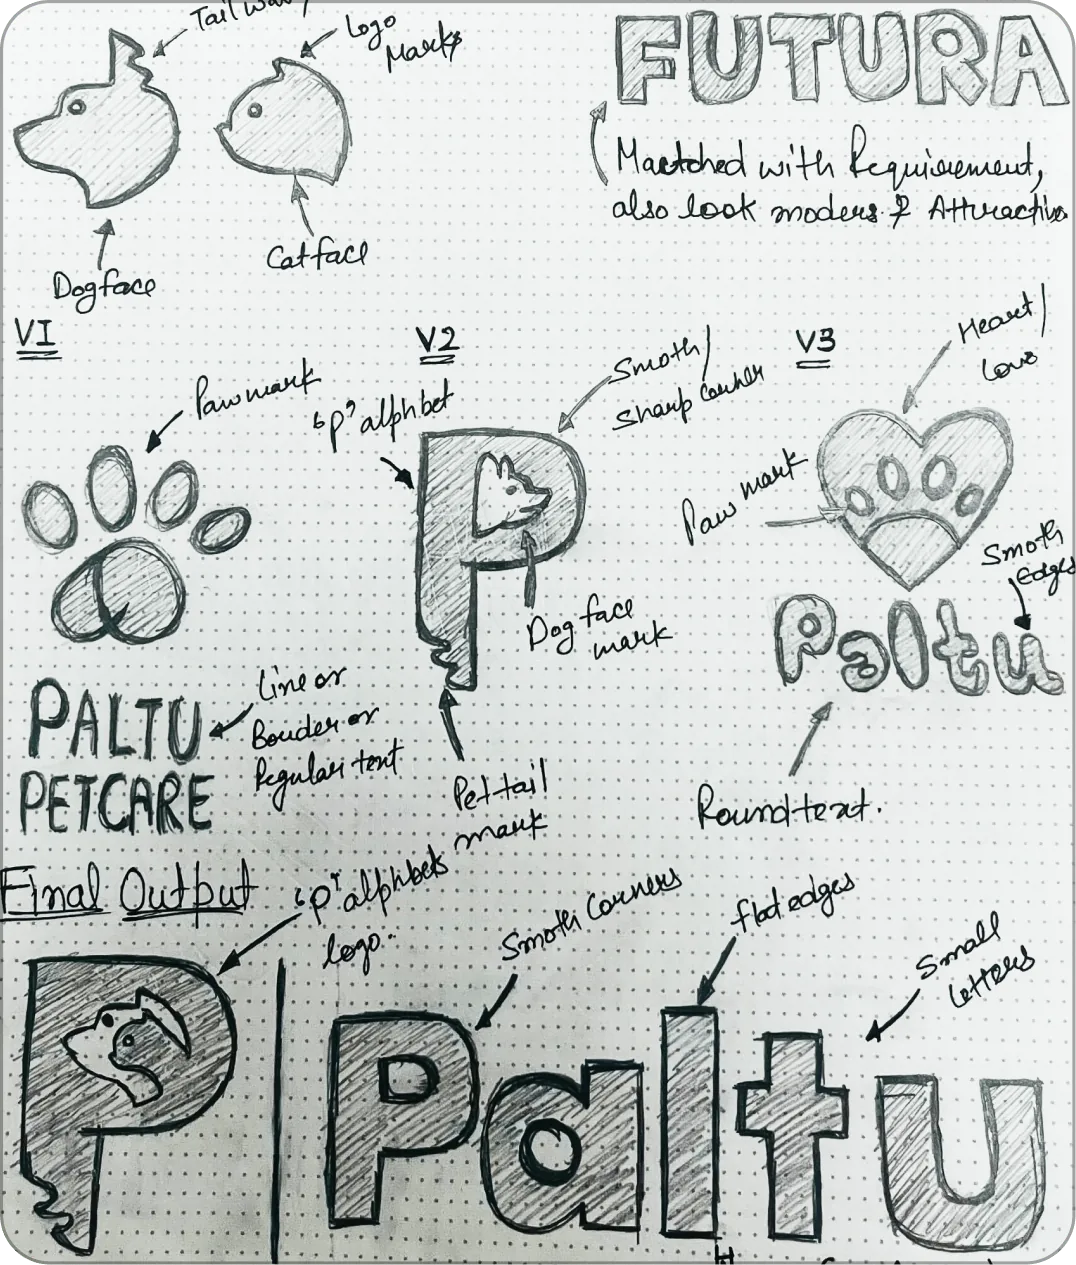 Tail
Logo
Marks
FUTURA
Maetched with Requirement,
also look moders & Attractive
Dogface
Catface
V1
V2
V3
Pawmark
'P' alphbet
Smoth/
Sharp Corner
Heart/
Love
Paw mark
Smoth
Edges
Dog face
mark
Paltu
PALTU
PETCARE
Line or
Border or
Regular text
Pet tail
mark
Round text.
Final Output
'P' alphbets
logo.
Smoth Corners
flat edges
Small
letters
P
Paltu